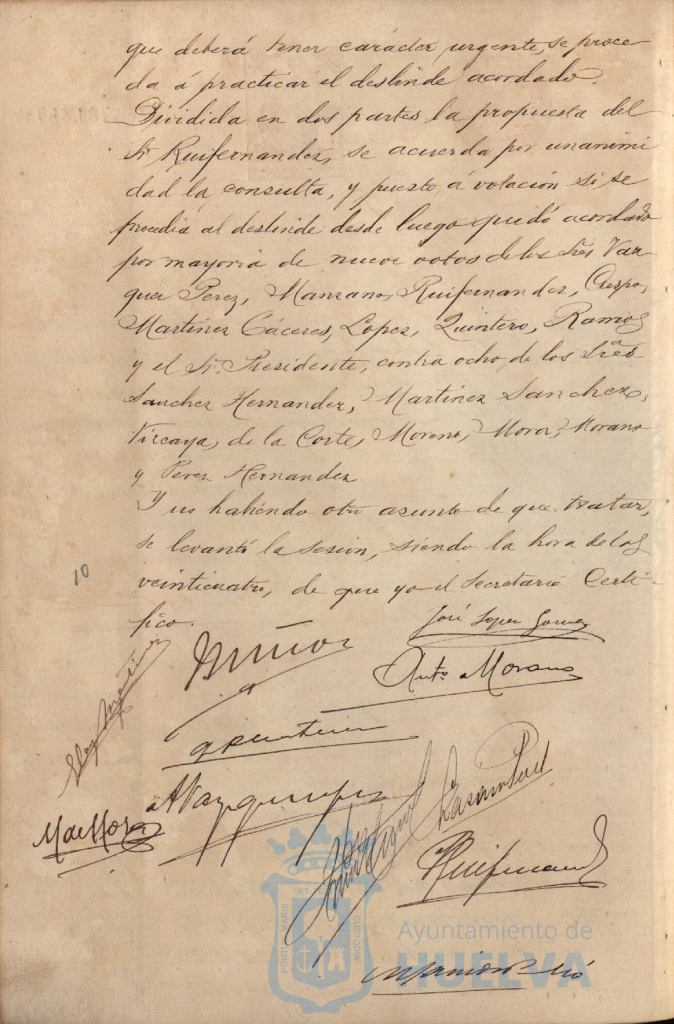 que deberá tener carácter urgente, se proce
da á practicar el deslinde acordado.
Dividida en dos partes la propuesta del
Sr. Ruifernandez, se acuerda por unanimi
dad la consulta, y puesto á votación si se
procedia al deslinde desde luego quedó acordado
por mayoria de nueve votos de los Sres Vaz
quez Perez, Manzano, Ruifernandez, Crespo,
Martinez Cáceres, Lopez, Quintero, Ramos
y el Sr. Presidente, contra ocho, de los Sres
Sanchez Hernandez, Martinez Sanchez,
Vizcaya, de la Corte, Moreno, Mora, Morano
y Perez Hernandez
Y no habiendo otro asunto de que tratar,
se levantó la sesión, siendo la hora de las
veinticuatro, de que yo el Secretario Certi-
fico.
10
José Lopez Gomez
Muñoz
Anto. Morano
A Vazquez Perez
Mac Mora
Ruifernand
PORTUS MARIS
ET
CUSTODIA
Ayuntamiento de
HUELVA